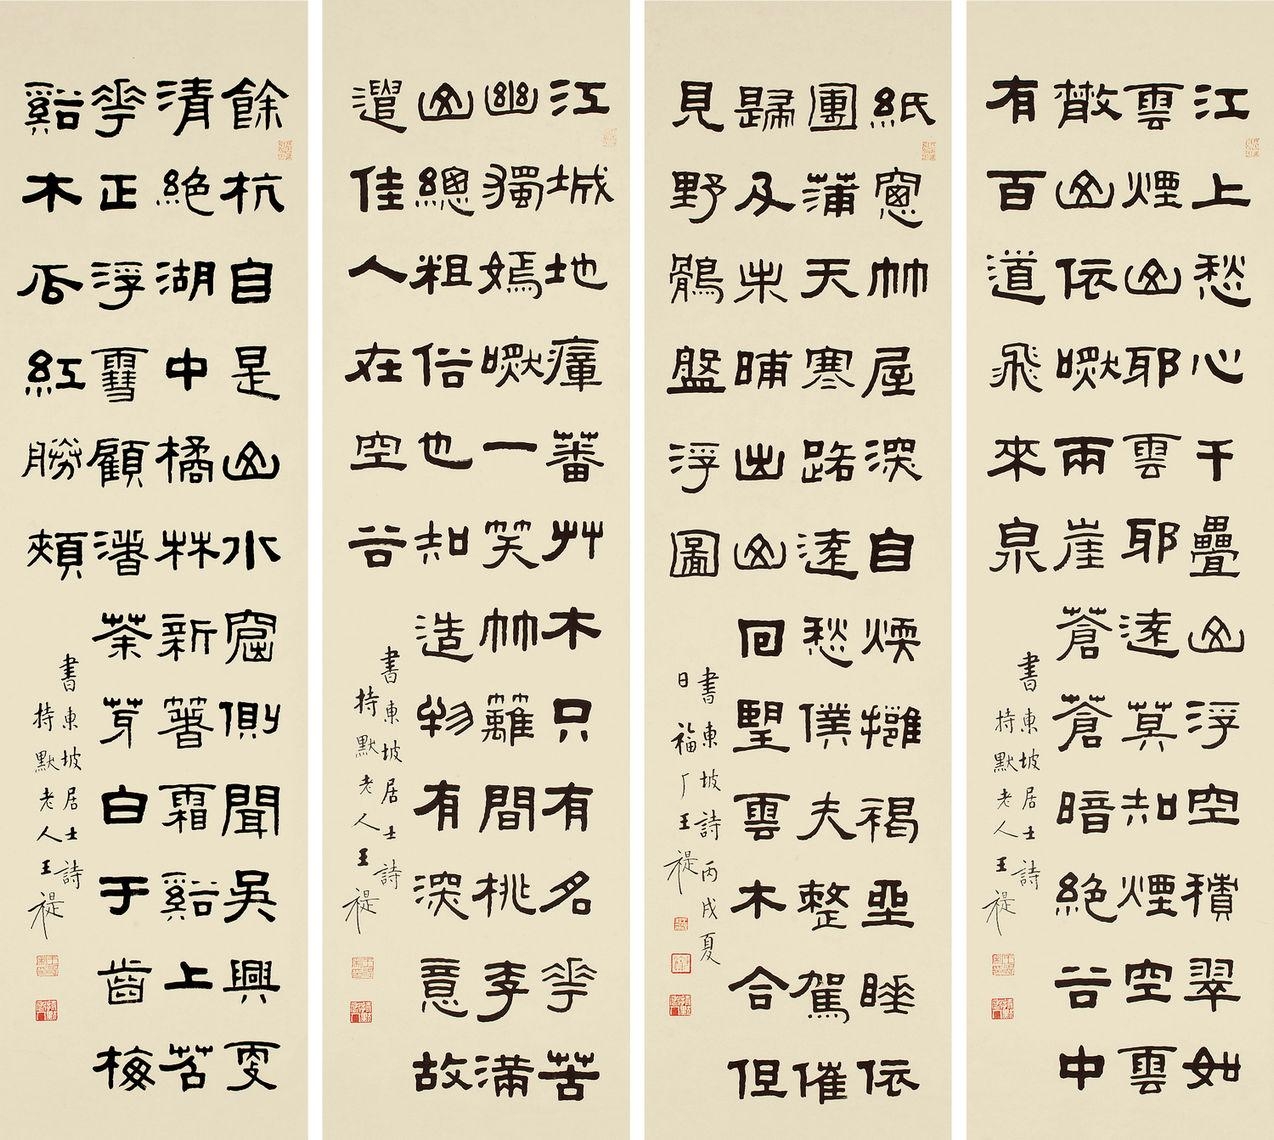 江上愁心千疊山浮空積翠如
雲煙山耶雲耶遠莫知煙空雲
散山依然兩崖蒼蒼暗絕谷中
有百道飛來泉
書東坡居士詩
持默老人王禔
紙窻竹屋深自煖擁褐坐睡依
團蒲天寒路遠愁僕夫整駕催
歸及未晡出山回望雲木合但
見野鶻盤浮圖
書東坡詩丙戌夏
日福厂王禔
江城地瘴蕃艸木只有名花苦
幽獨嫣然一笑竹籬間桃李滿
山總粗俗也知造物有深意故
遣佳人在空谷
書東坡居士詩
持默老人王禔
餘杭自是山水窟側聞吳興更
清絕湖中橘林新著霜谿上苕
花正浮雪顧渚茶芽白于齒梅
谿木瓜紅勝頰
書東坡居士詩
持默老人王禔